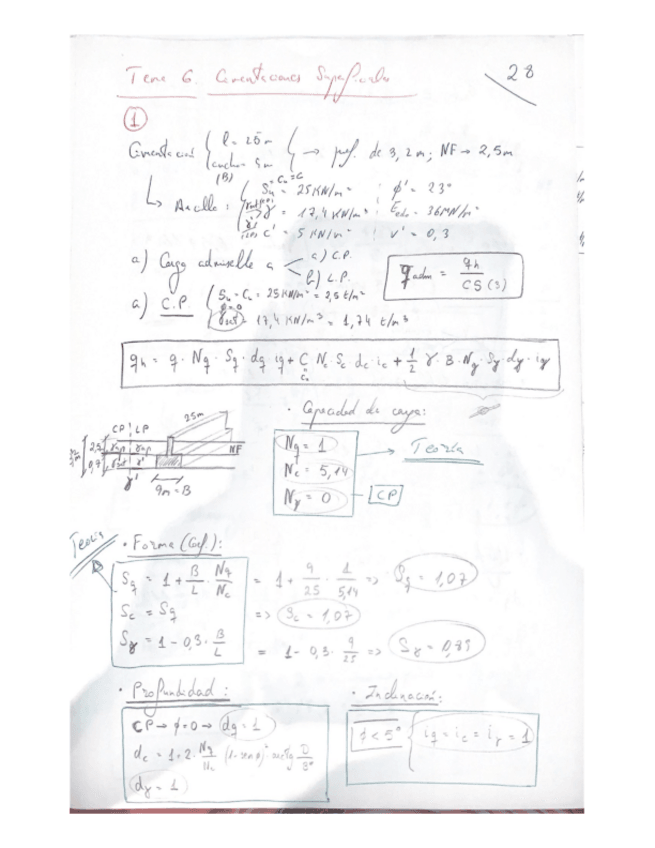 Tema 6. Cimentaciones Superficiales
28
1
Cimentación { l = 25m
ancho = 9m
(B)
→ prof. de 3,2m; NF → 2,5m
= Cu =
↳ Arcilla: Su = 25 KN/m² ¦ ϕ' = 23°
γ = 17,4 KN/m³ ¦ Eedo = 36MN/m²
C' = 5 KN/m² ¦ ν' = 0,3
a) Carga admisible a < a) C.P.
b) L.P.
q adm = qh / CS(3)
a) C.P. { Su = Cu = 25KN/m² = 2,5 t/m²
ϕ=0
γsat = 17,4 KN/m³ = 1,74 t/m³
qh = q · Nq · Sq · dq · iq + C Nc · Sc · dc · ic + 1/2 γ · B · Nγ · Sγ · dγ · iγ
Cu
· Capacidad de carga:
CP ¦ LP
25m
NF
2,5
0,7
γ'
9m = B
Nq = 1
Nc = 5,14
Nγ = 0
→ Teoría
CP
Teoría
· Forma (Coef.):
Sq = 1 + B/L · Nq/Nc = 1 + 9/25 · 1/5,14 => Sq = 1,07
Sc = Sq => Sc = 1,07
Sγ = 1 - 0,3 · B/L = 1 - 0,3 · 9/25 => Sγ = 0,89
· Profundidad:
CP → ϕ=0 → dq = 1
dc = 1+2 · Nq/Nc (1-sen ϕ)² · arctg D/B*
dγ = 1
· Inclinación:
< 5° { iq = ic = iγ = 1